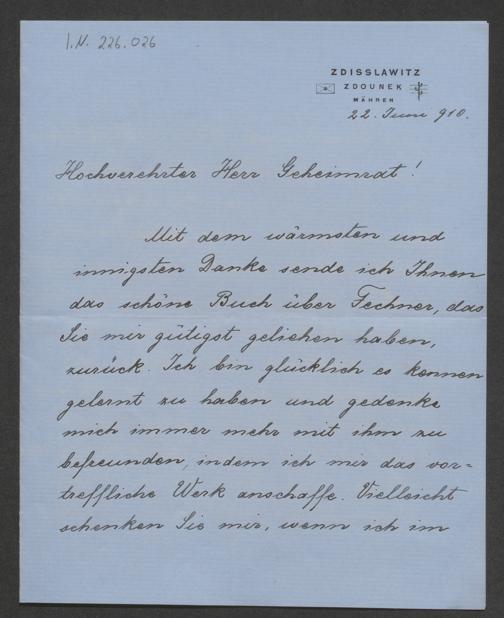 I.N. 226.026
ZDISSLAWITZ
ZDOUNEK
MÄHREN
22. Juni 910.
Hochverehrter Herr Geheimrat!
Mit dem wärmsten und
innigsten Danke sende ich Ihnen
das schöne Buch über Fechner, das
Sie mir gütigst geliehen haben,
zurück. Ich bin glücklich es kennen
gelernt zu haben und gedenke
mich immer mehr mit ihm zu
befreunden, indem ich mir das vor=
treffliche Werk anschaffe. Vielleicht
schenken Sie mir, wenn ich im